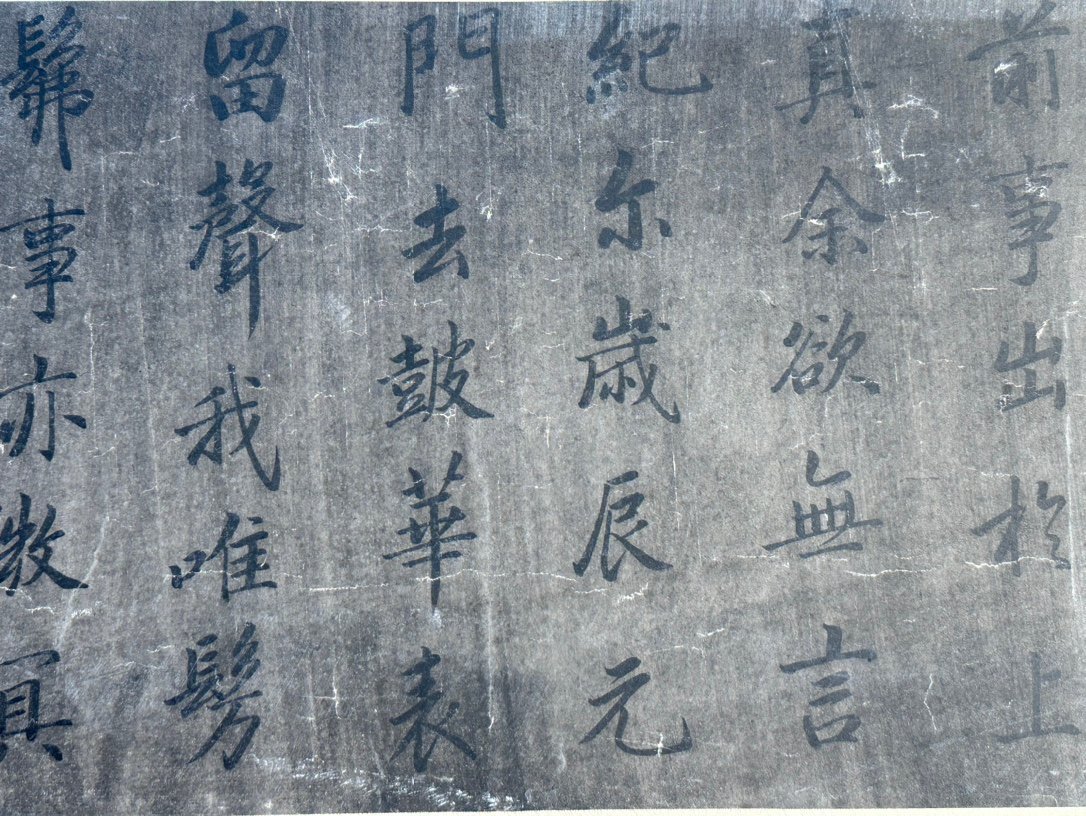 前事出於上
真余欲無言
紀尓歲辰元
門去皷華表
留聲我唯髣
髴事亦微冥